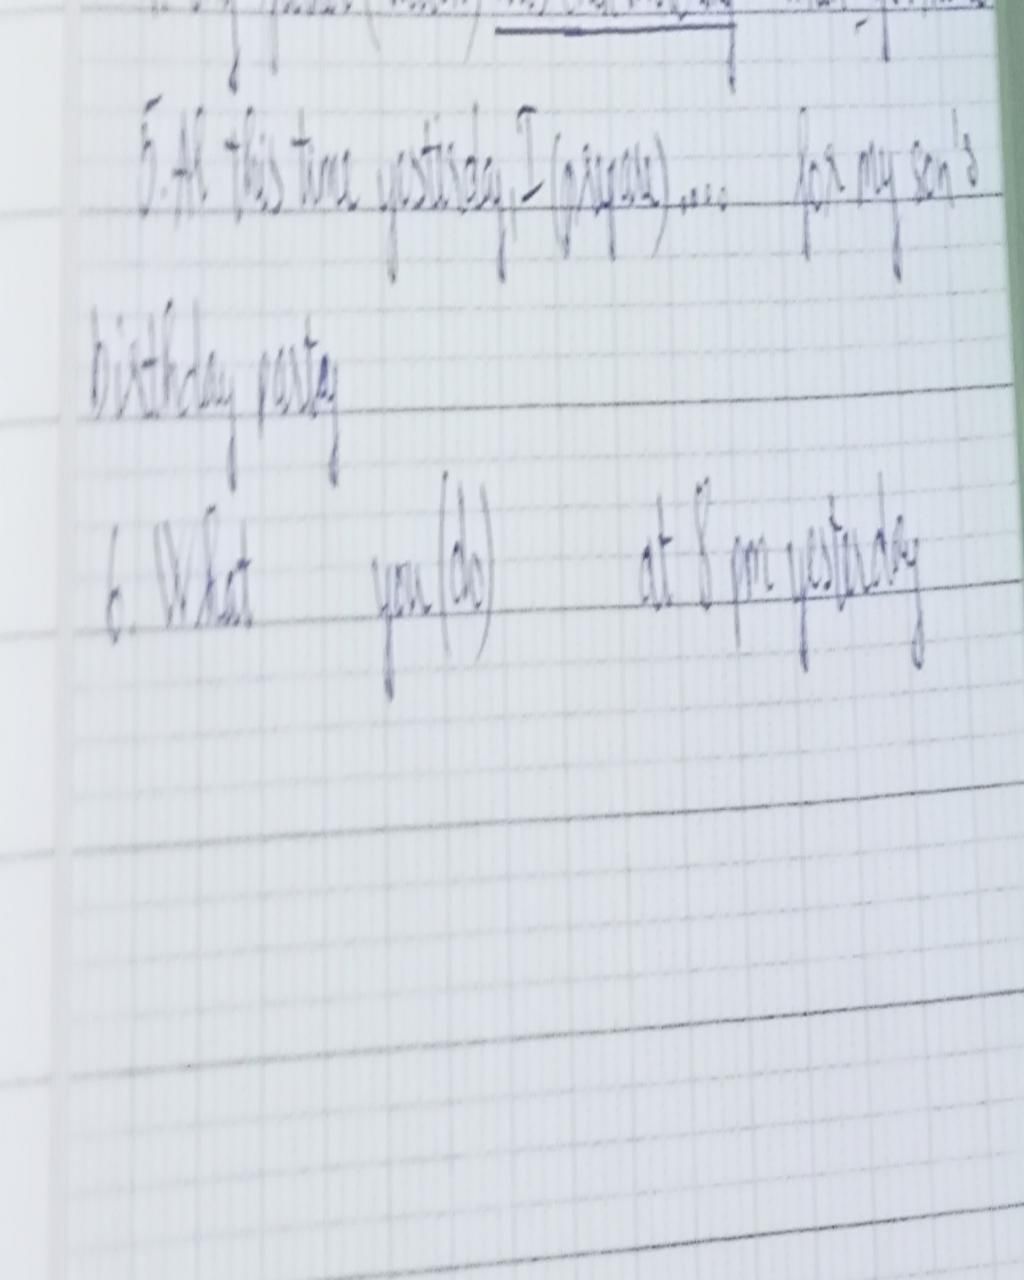 5. At this time yesterday, I (prepare).... for my son's
birthday party
6. What you (do) at 8 pm yesterday